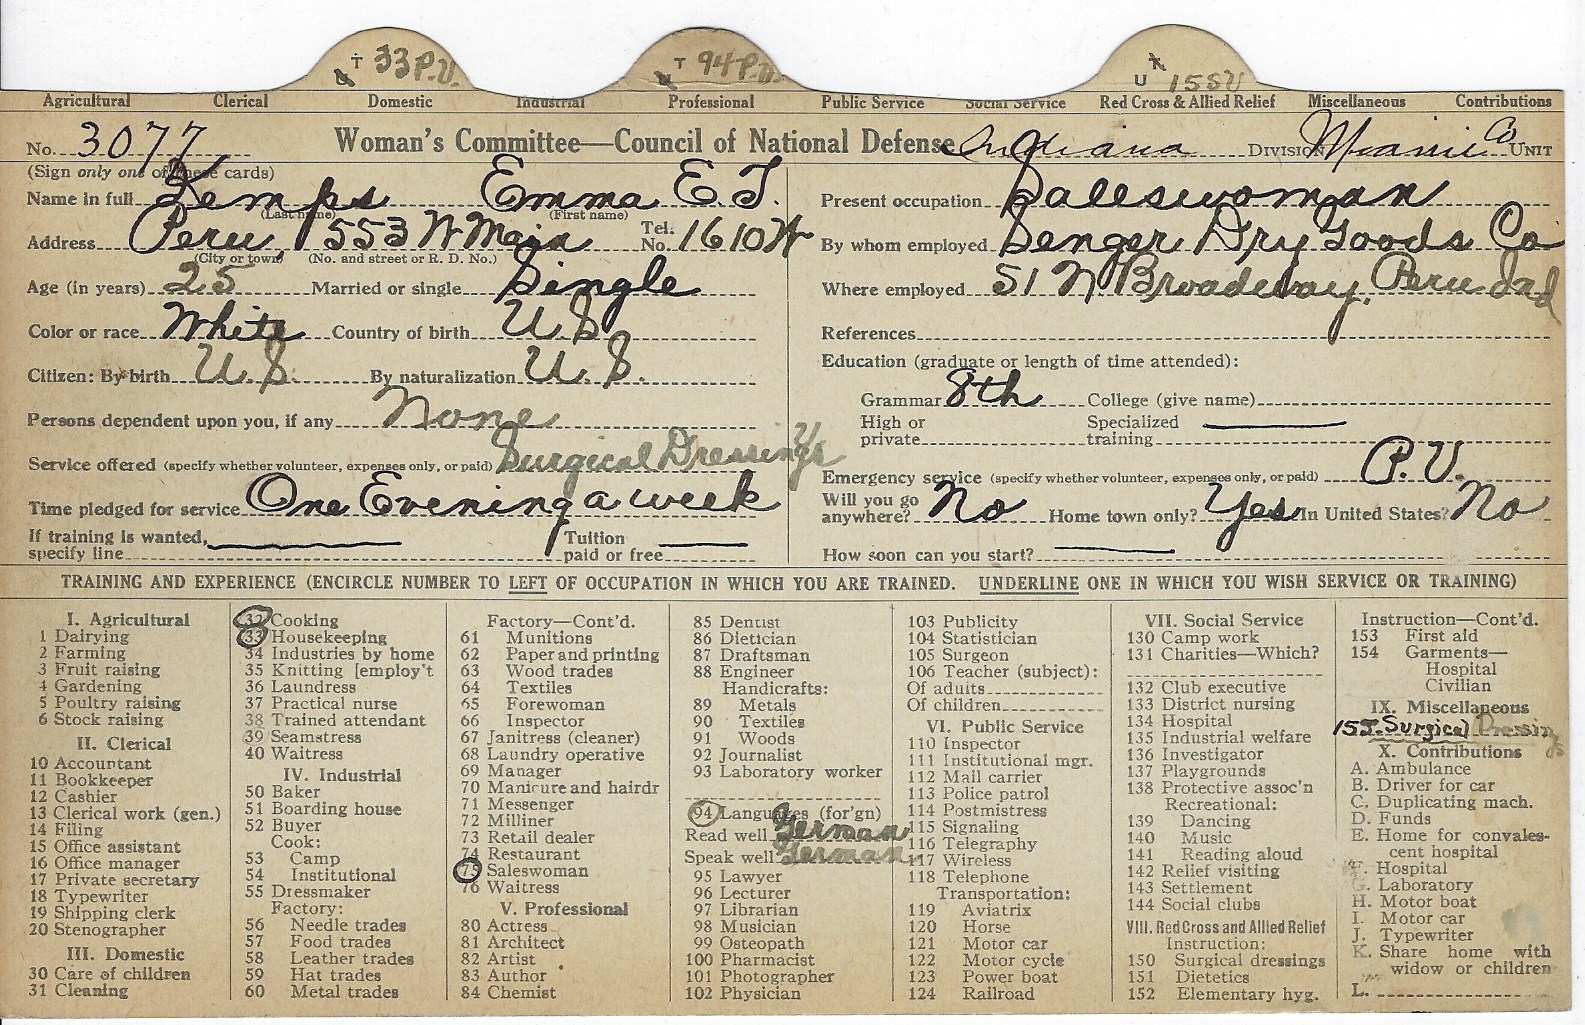 T 33 P.V. T 94 P.V. U 155V
Agricultural Clerical Domestic Industrial Professional Public Service Social Service Red Cross & Allied Relief Miscellaneous Contributions
No. 3077 Woman's Committee—Council of National Defense Indiana DIVISION Miami Co UNIT
(Sign only one of these cards)
Name in full Kemps Emma E. T.
(Last name) (First name)
Address Peru, 553 W Main Tel. No. 1610 W
(City or town) (No. and street or R. D. No.)
Age (in years) 25 Married or single Single
Color or race White Country of birth U S
Citizen: By birth U. S. By naturalization U. S.
Persons dependent upon you, if any None
Service offered (specify whether volunteer, expenses only, or paid) Surgical Dressings
Time pledged for service One Evening a week
If training is wanted, Tuition
specify line paid or free
Present occupation Saleswoman
By whom employed Senger Dry Goods Co
Where employed 51 N Broadway, Peru Ind
References
Education (graduate or length of time attended):
Grammar 8th College (give name)
High or Specialized
private training
Emergency service (specify whether volunteer, expenses only, or paid) P. V.
Will you go
anywhere? No Home town only? Yes In United States? No
How soon can you start?
TRAINING AND EXPERIENCE (ENCIRCLE NUMBER TO LEFT OF OCCUPATION IN WHICH YOU ARE TRAINED. UNDERLINE ONE IN WHICH YOU WISH SERVICE OR TRAINING)
I. Agricultural
1 Dairying
2 Farming
3 Fruit raising
4 Gardening
5 Poultry raising
6 Stock raising
II. Clerical
10 Accountant
11 Bookkeeper
12 Cashier
13 Clerical work (gen.)
14 Filing
15 Office assistant
16 Office manager
17 Private secretary
18 Typewriter
19 Shipping clerk
20 Stenographer
III. Domestic
30 Care of children
31 Cleaning
32 Cooking
33 Housekeeping
34 Industries by home
35 Knitting [employ't
36 Laundress
37 Practical nurse
38 Trained attendant
39 Seamstress
40 Waitress
IV. Industrial
50 Baker
51 Boarding house
52 Buyer
Cook:
53 Camp
54 Institutional
55 Dressmaker
Factory:
56 Needle trades
57 Food trades
58 Leather trades
59 Hat trades
60 Metal trades
Factory—Cont'd.
61 Munitions
62 Paper and printing
63 Wood trades
64 Textiles
65 Forewoman
66 Inspector
67 Janitress (cleaner)
68 Laundry operative
69 Manager
70 Manicure and hairdr
71 Messenger
72 Milliner
73 Retail dealer
74 Restaurant
75 Saleswoman
76 Waitress
V. Professional
80 Actress
81 Architect
82 Artist
83 Author
84 Chemist
85 Dentist
86 Dietician
87 Draftsman
88 Engineer
Handicrafts:
89 Metals
90 Textiles
91 Woods
92 Journalist
93 Laboratory worker
94 Languages (for'gn)
Read well German
Speak well German
95 Lawyer
96 Lecturer
97 Librarian
98 Musician
99 Osteopath
100 Pharmacist
101 Photographer
102 Physician
103 Publicity
104 Statistician
105 Surgeon
106 Teacher (subject):
Of adults
Of children
VI. Public Service
110 Inspector
111 Institutional mgr.
112 Mail carrier
113 Police patrol
114 Postmistress
115 Signaling
116 Telegraphy
117 Wireless
118 Telephone
Transportation:
119 Aviatrix
120 Horse
121 Motor car
122 Motor cycle
123 Power boat
124 Railroad
VII. Social Service
130 Camp work
131 Charities—Which?
132 Club executive
133 District nursing
134 Hospital
135 Industrial welfare
136 Investigator
137 Playgrounds
138 Protective assoc'n
Recreational:
139 Dancing
140 Music
141 Reading aloud
142 Relief visiting
143 Settlement
144 Social clubs
VIII. Red Cross and Allied Relief
Instruction:
150 Surgical dressings
151 Dietetics
152 Elementary hyg.
Instruction—Cont'd.
153 First aid
154 Garments—
Hospital
Civilian
IX. Miscellaneous
155. Surgical Dressings
X. Contributions
A. Ambulance
B. Driver for car
C. Duplicating mach.
D. Funds
E. Home for convales-
cent hospital
F. Hospital
G. Laboratory
H. Motor boat
I. Motor car
J. Typewriter
K. Share home with
widow or children
L.